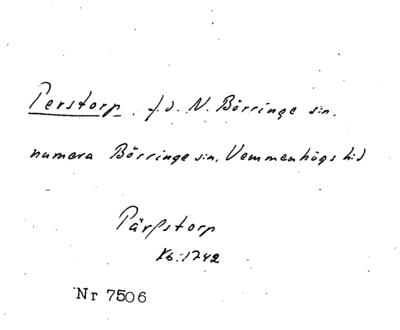 Perstorp, f.d. N. Börringe sn.
numera Börringe sn, Vemmenhögs hd
Pärßstorp
Kb: 1742
Nr 7506